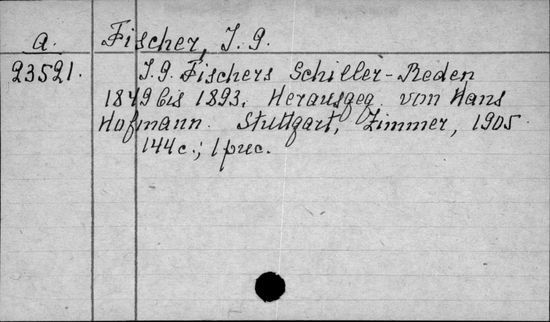 a. Fischer, J. G.
23521. J. G. Fischers Schiller-Reden
1849 bis 1893. Herausgeg. von Hans
Hofmann. Stuttgart, Zimmer, 1905.
144 c.; 1 рис.